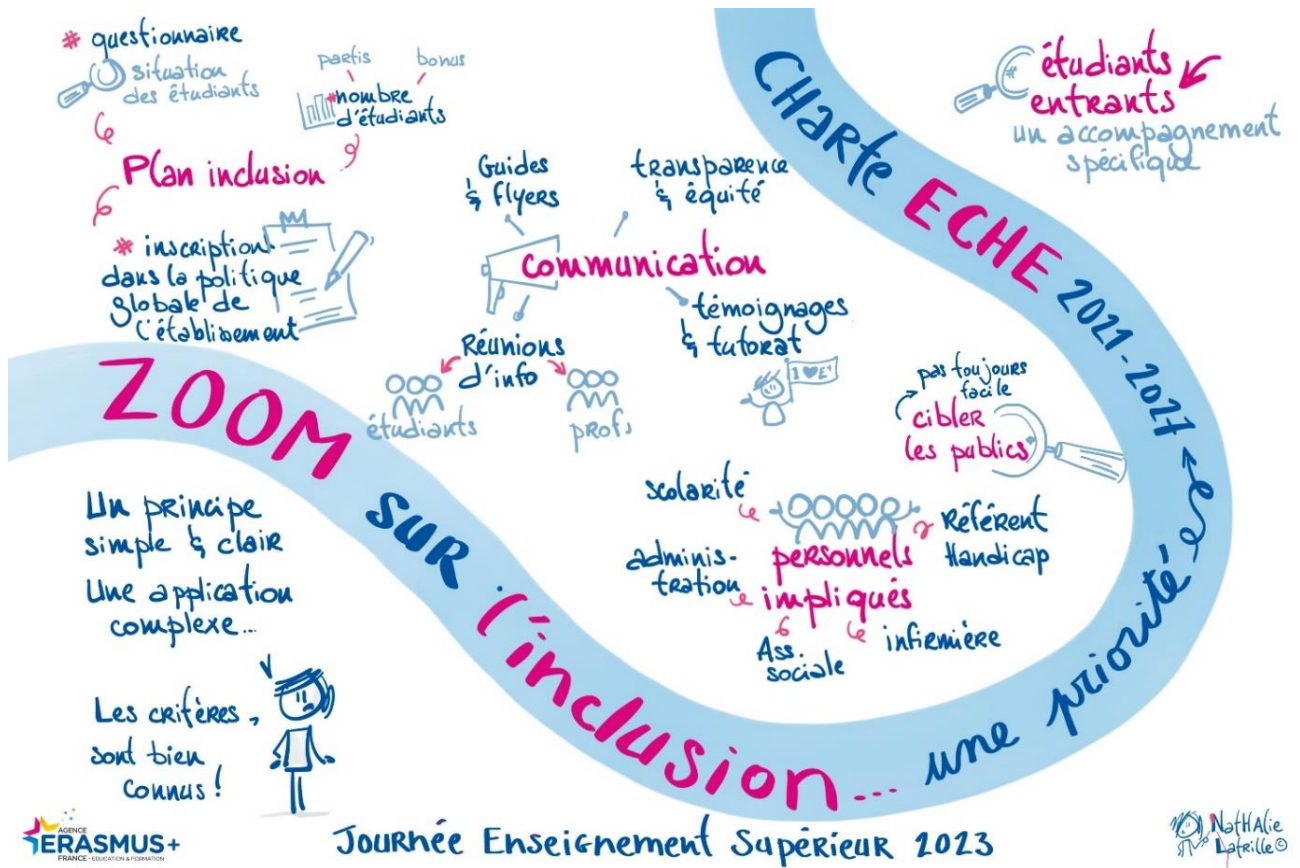 # questionnaire
situation
des étudiants
partis
bonus
#nombre
d'étudiants
Plan inclusion
# inscription
dans la politique
globale de
l'établissement
Guides
& flyers
transparence
& équité
communication
témoignages
& tutorat
I ♥ E+
Réunions
d'info
étudiants
profs
ZOOM SUR l'inclusion... une priorité
CHARTE ECHE 2021-2027
#
étudiants
entrants
un accompagnement
spécifique
pas toujours
facile
cibler
les publics
scolarité
adminis-
tration
personnels
impliqués
Référent
Handicap
Ass.
sociale
infirmière
Un principe
simple & clair
Une application
complexe...
Les critères,
sont bien
connus !
AGENCE
ERASMUS+
FRANCE - EDUCATION & FORMATION
Journée Enseignement Supérieur 2023
NatHAlie
Latrille©